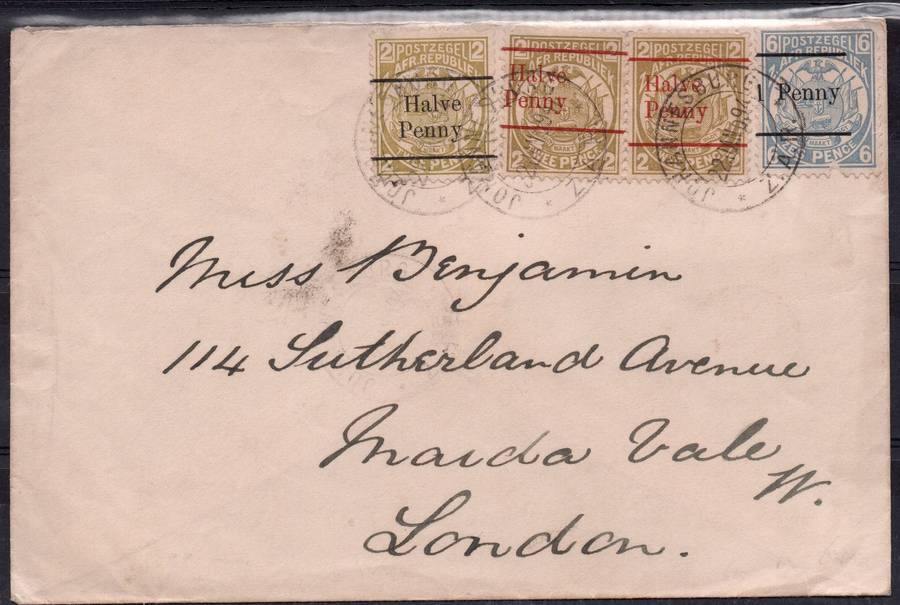 2 POSTZEGEL 2
AFR. REPUBLIEK
Halve
Penny
TWEE PENCE
2 POSTZEGEL 2
AFR. REPUBLIEK
Halve
Penny
2 TWEE PENCE 2
2 POSTZEGEL 2
AFR. REPUBLIEK
Halve
Penny
2 TWEE PENCE
6 POSTZEGEL 6
AFR. REPUBLIEK
1 Penny
6 ZES PENCE 6
JOHANNESBURG
Z.A.R.
Miss Benjamin
114 Sutherland Avenue
Maida Vale
W.
London.